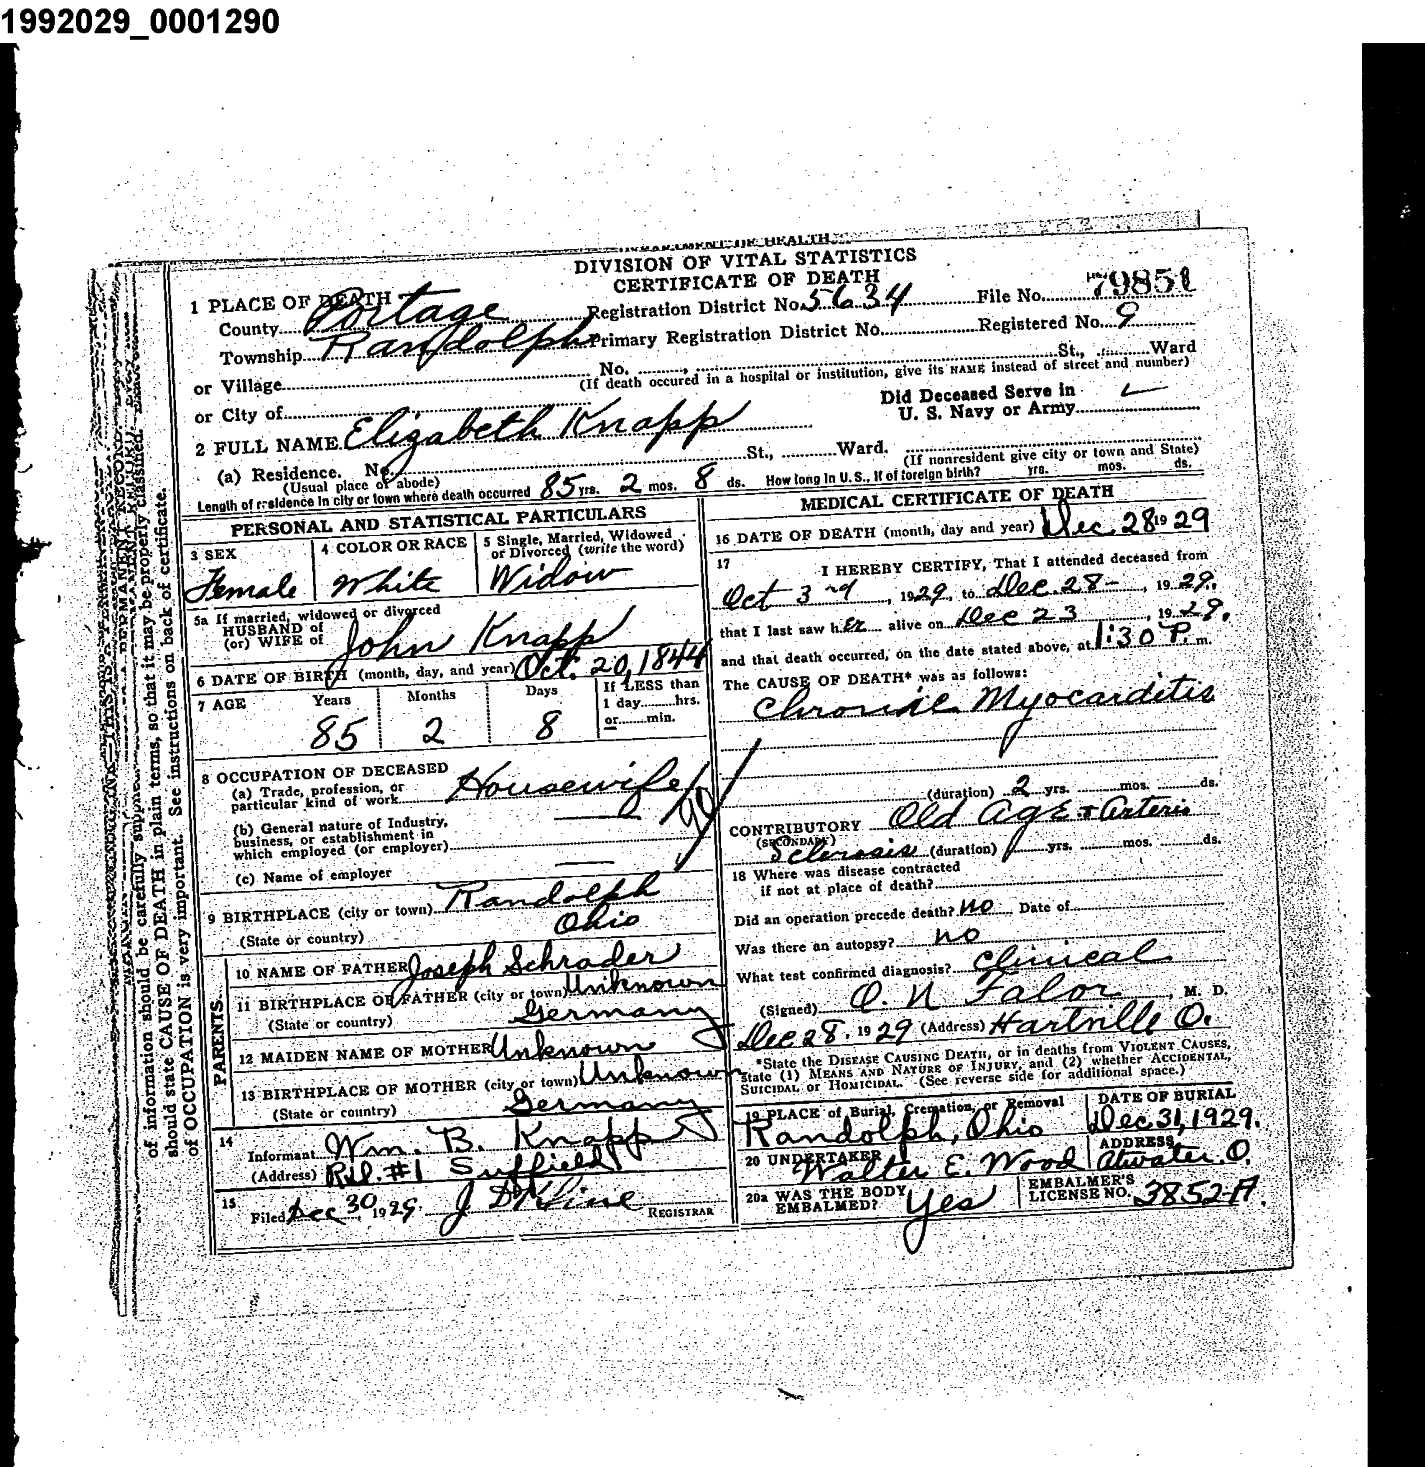 1992029_0001290
DEPARTMENT OF HEALTH
DIVISION OF VITAL STATISTICS
CERTIFICATE OF DEATH
1 PLACE OF DEATH
County Portage Registration District No. 5634 File No. 79851
Township Randolph Primary Registration District No. Registered No. 9
or Village No. , St., Ward
(If death occured in a hospital or institution, give its NAME instead of street and number)
or City of
Did Deceased Serve in
U. S. Navy or Army
2 FULL NAME Elizabeth Knapp
(a) Residence. No. St., Ward.
(Usual place of abode) (If nonresident give city or town and State)
Length of residence in city or town where death occurred 85 yrs. 2 mos. 8 ds. How long in U. S., if of foreign birth? yrs. mos. ds.
PERSONAL AND STATISTICAL PARTICULARS
3 SEX
Female
4 COLOR OR RACE
White
5 Single, Married, Widowed
or Divorced (write the word)
Widow
5a If married, widowed or divorced
HUSBAND of
(or) WIFE of
John Knapp
6 DATE OF BIRTH (month, day, and year) Oct. 20, 1844
7 AGE Years Months Days If LESS than
1 day hrs.
or min.
85 2 8
8 OCCUPATION OF DECEASED
(a) Trade, profession, or
particular kind of work Housewife
(b) General nature of Industry,
business, or establishment in
which employed (or employer)
(c) Name of employer
9 BIRTHPLACE (city or town) Randolph
(State or country) Ohio
PARENTS.
10 NAME OF FATHER Joseph Schrader
11 BIRTHPLACE OF FATHER (city or town) Unknown
(State or country) Germany
12 MAIDEN NAME OF MOTHER Unknown
13 BIRTHPLACE OF MOTHER (city or town) Unknown
(State or country) Germany
14
Informant Wm. B. Knapp
(Address) R.d. #1 Suffield
15
Filed Dec 30 1929. J D Kline REGISTRAR
MEDICAL CERTIFICATE OF DEATH
16 DATE OF DEATH (month, day and year) Dec. 28 19 29
17 I HEREBY CERTIFY, That I attended deceased from
Oct 3rd, 1929, to Dec. 28-, 1929.
that I last saw her alive on Dec 23, 1929.
and that death occurred, on the date stated above, at 1:30 P. m.
The CAUSE OF DEATH* was as follows:
Chronic Myocarditis
(duration) 2 yrs. mos. ds.
CONTRIBUTORY Old Age + Arterio
(SECONDARY)
Sclerosis (duration) yrs. mos. ds.
18 Where was disease contracted
if not at place of death?
Did an operation precede death? No Date of
Was there an autopsy? no
What test confirmed diagnosis? Clinical
(Signed) O. N Falor, M. D.
Dec 28. 1929 (Address) Hartville O.
*State the DISEASE CAUSING DEATH, or in deaths from VIOLENT CAUSES,
state (1) MEANS AND NATURE OF INJURY, and (2) whether ACCIDENTAL,
SUICIDAL or HOMICIDAL. (See reverse side for additional space.)
19 PLACE of Burial, Cremation, or Removal
Randolph, Ohio
DATE OF BURIAL
Dec. 31, 1929.
20 UNDERTAKER
Walter E. Wood
ADDRESS
Atwater, O.
20a WAS THE BODY
EMBALMED? Yes
EMBALMER'S
LICENSE NO. 3852-A.
of information should be carefully supplied.
should state CAUSE OF DEATH in plain terms, so that it may be properly classified.
of OCCUPATION is very important. See instructions on back of certificate.